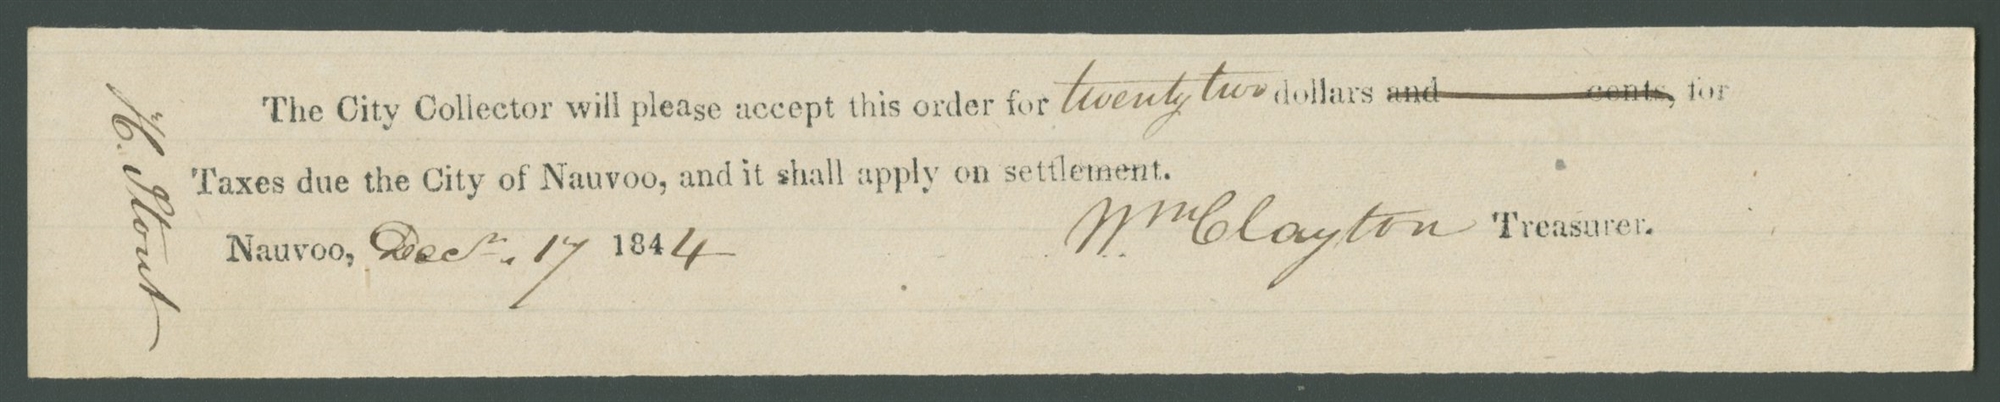 The City Collector will please accept this order for twenty two dollars and cents, for
Taxes due the City of Nauvoo, and it shall apply on settlement.
Wm Clayton Treasurer.
Nauvoo, Decr. 17 1844
H. Stout